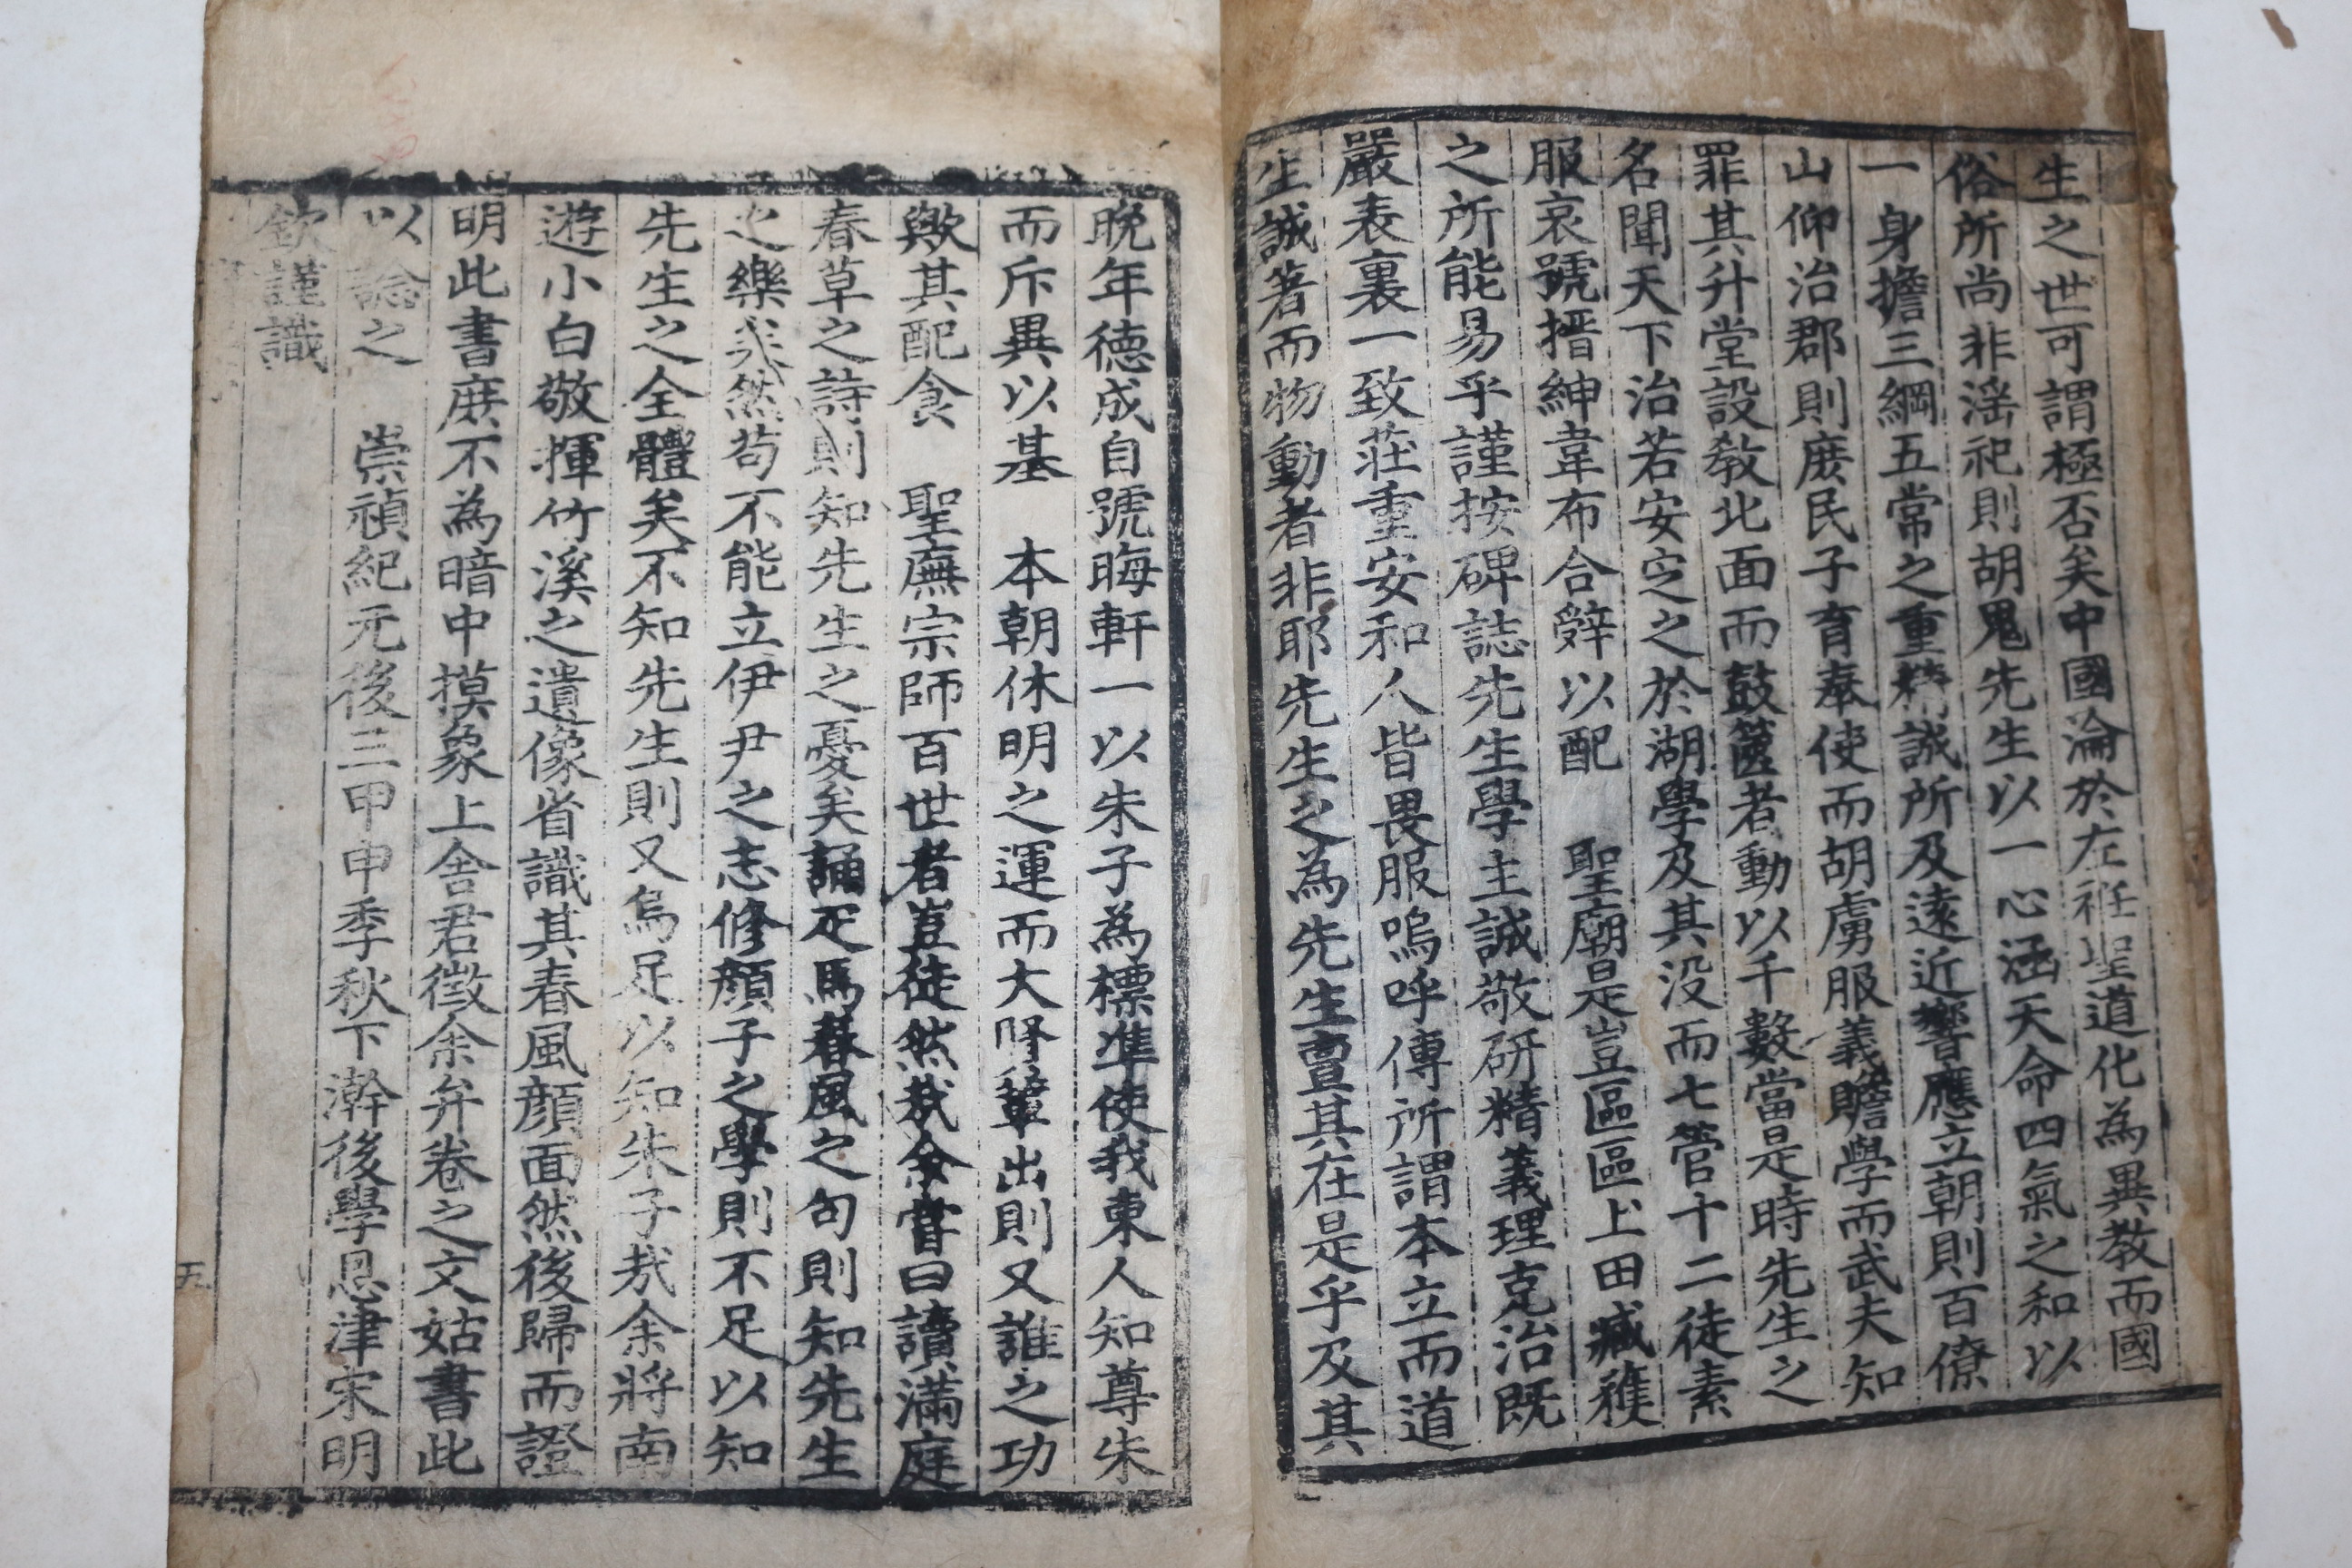 生之世可謂極否矣中國淪於左衽聖道化為異教而國
俗所尚非淫祀則胡鬼先生以一心涵天命四氣之和以
一身擔三綱五常之重精誠所及遠近響應立朝則百僚
山仰治郡則庶民子育奉使而胡虜服義贍學而武夫知
罪其升堂設教北面而鼓篋者動以千數當是時先生之
名聞天下治若安定之於湖學及其没而七管十二徒素
服哀號搢紳韋布合辭以配 聖廟是豈區區上田臧穫
之所能易乎謹按碑誌先生學主誠敬研精義理克治既
嚴表裏一致莊重安和人皆畏服嗚呼傳所謂本立而道
生誠著而物動者非耶先生之為先生亶其在是乎及其
晩年德成自號晦軒一以朱子為標準使我東人知尊朱
而斥異以基 本朝休明之運而大賢輩出則又誰之功
歟其配食 聖廡宗師百世者豈徒然哉余嘗曰讀滿庭
春草之詩則知先生之憂矣誦疋馬春風之句則知先生
之樂矣然苟不能立伊尹之志修顔子之學則不足以知
先生之全體矣不知先生則又烏足以知朱子哉余將南
遊小白敬揮竹溪之遺像省識其春風顔面然後歸而證
明此書庶不為暗中摸象上舍君徵余弁卷之文姑書此
以諗之 崇禎紀元後三甲申季秋下澣後學恩津宋明
欽謹識
五